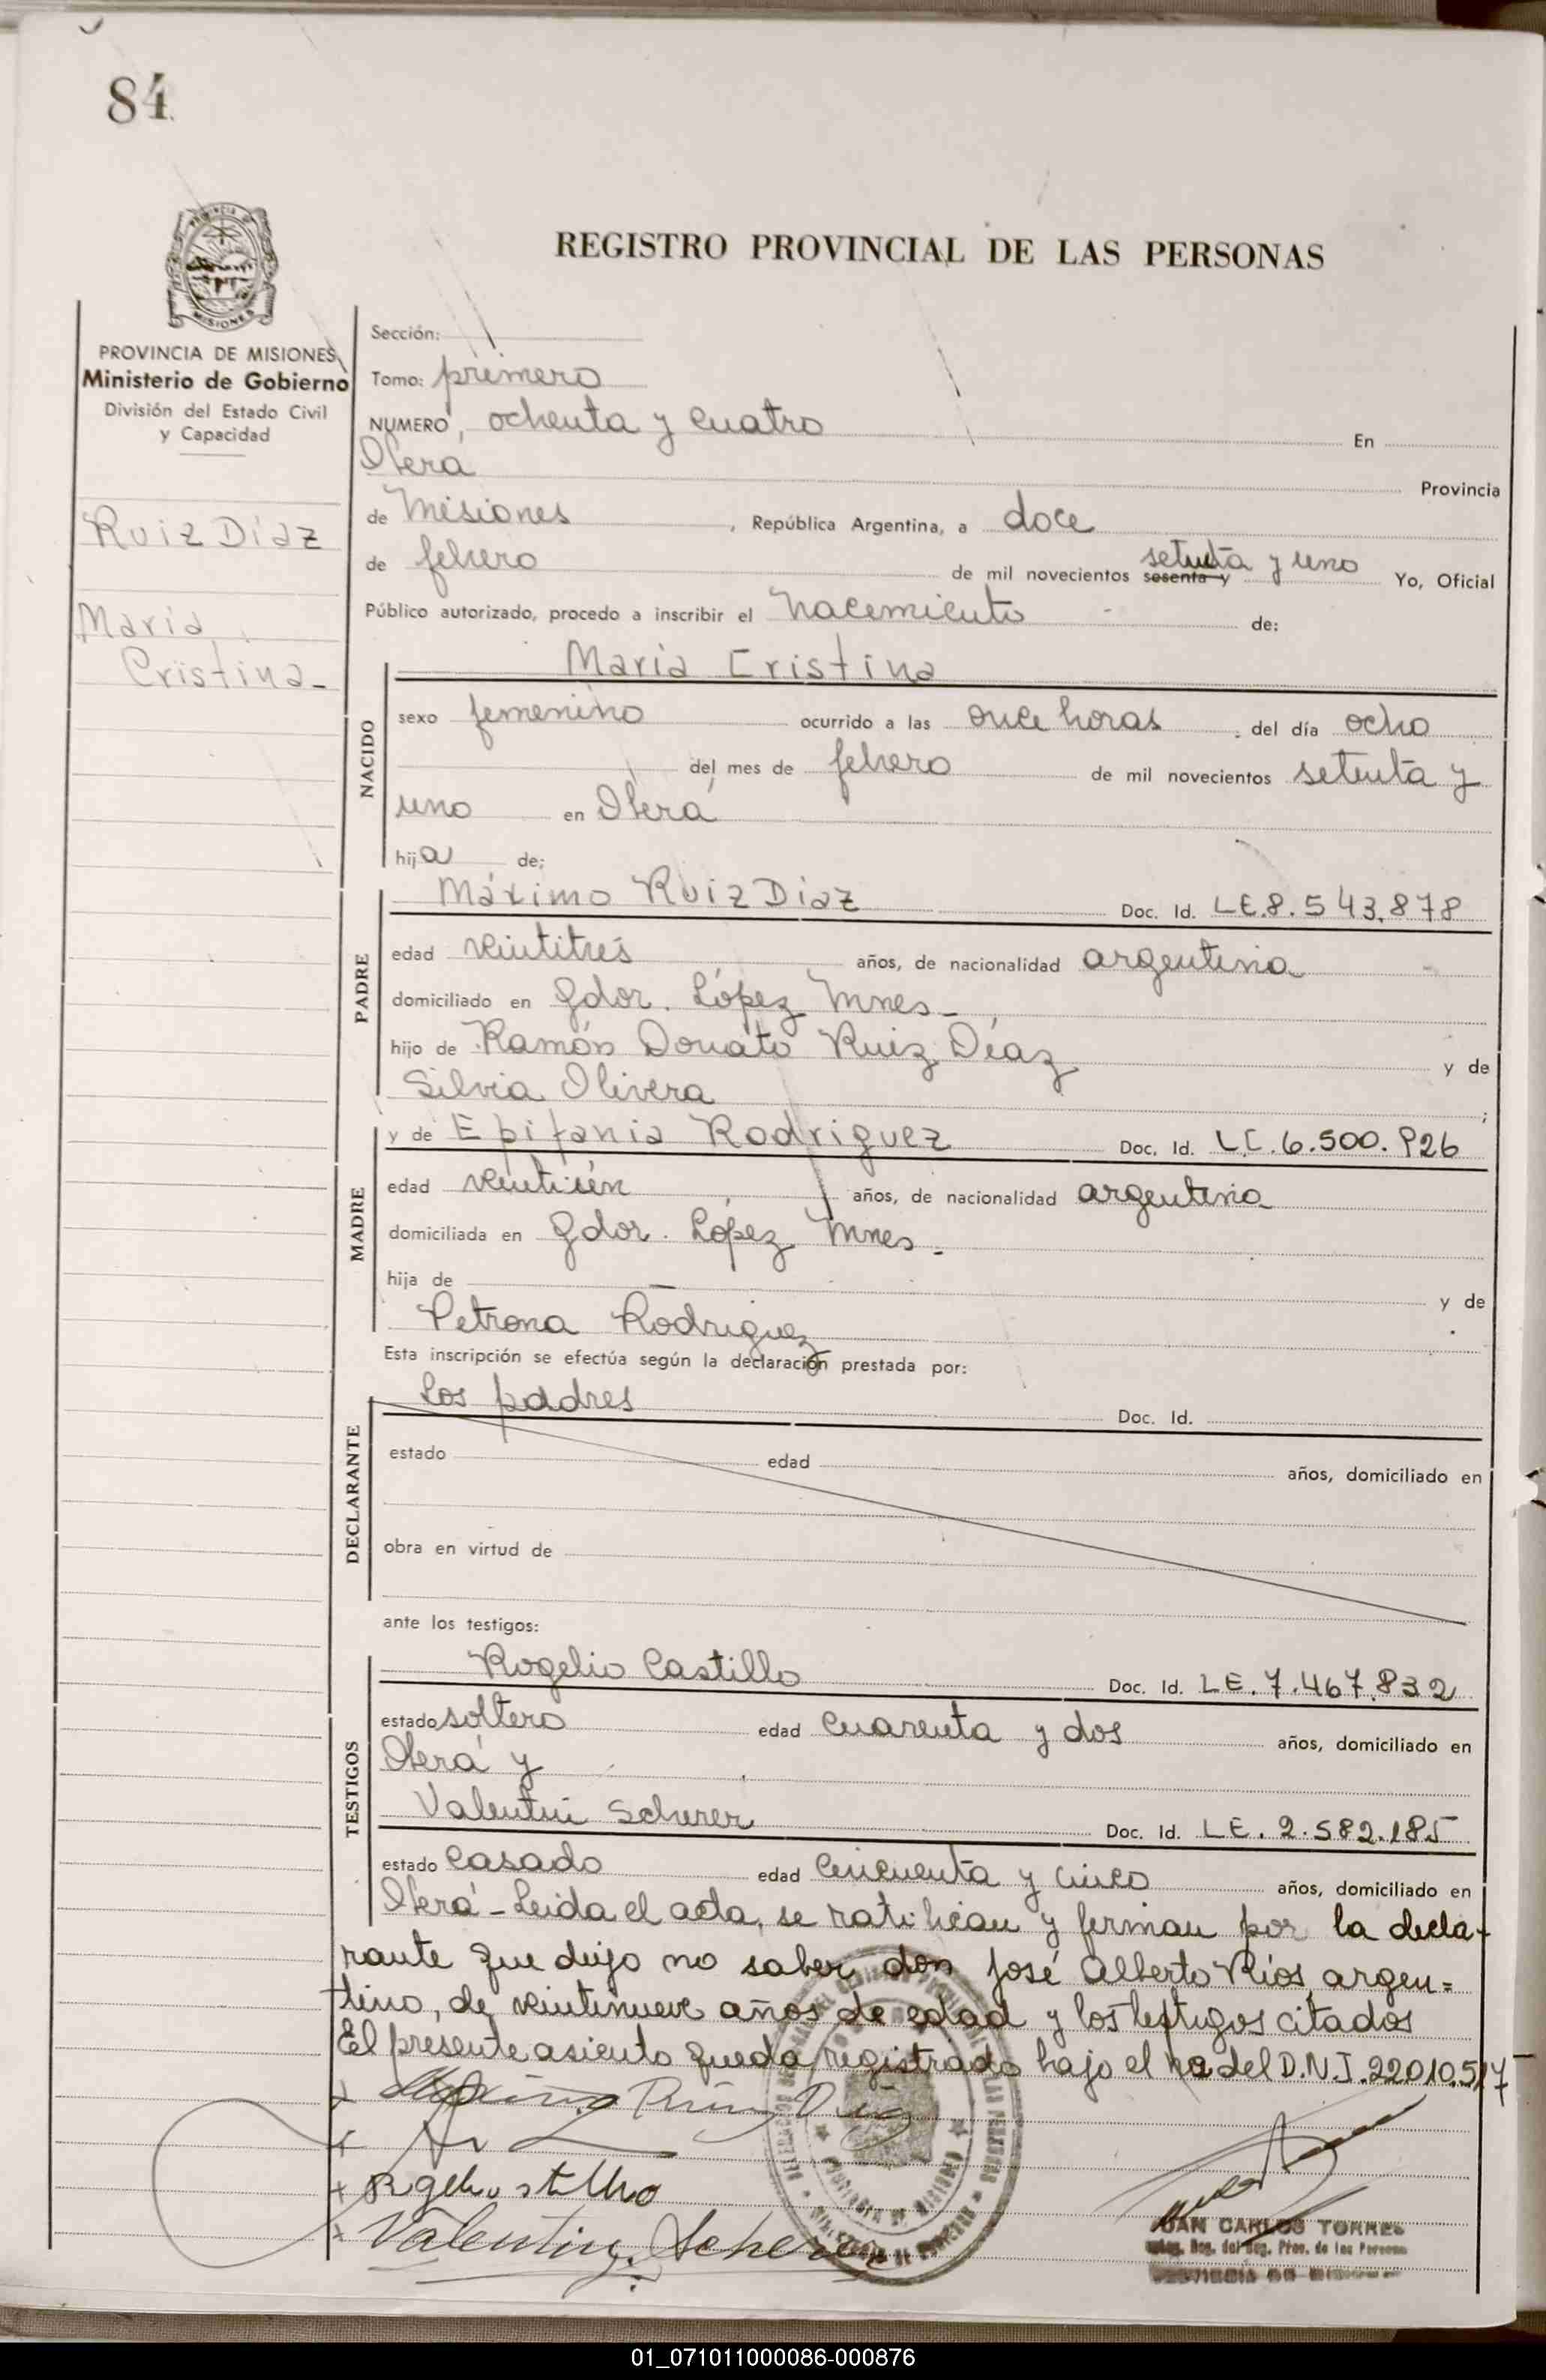 84
REGISTRO PROVINCIAL DE LAS PERSONAS
PROVINCIA DE MISIONES
Ministerio de Gobierno
División del Estado Civil
y Capacidad
Ruiz Díaz
María
Cristina-
Sección:
Tomo: primero
NUMERO, ochenta y cuatro En
Oberá Provincia
de Misiones, República Argentina, a doce
de febrero de mil novecientos sesenta y setenta y uno Yo, Oficial
Público autorizado, procedo a inscribir el nacimiento - de:
María Cristina
NACIDO
sexo femenino ocurrido a las once horas del día ocho
del mes de febrero de mil novecientos setenta y
uno en Oberá
hija de;
PADRE
Máximo Ruiz Díaz Doc. Id. LE.8.543.878
edad veintitrés años, de nacionalidad argentina
domiciliado en Gdor. López Mnes-
hijo de Ramón Donato Ruiz Díaz y de
Silvia Olivera;
MADRE
y de Epifania Rodriguez Doc. Id. LC.6.500.926
edad veintiún años, de nacionalidad argentina
domiciliada en Gdor. López Mnes-
hija de — y de
Petrona Rodriguez.
Esta inscripción se efectúa según la declaración prestada por:
DECLARANTE
Los padres Doc. Id.
estado edad años, domiciliado en
obra en virtud de
ante los testigos:
TESTIGOS
Rogelio Castillo Doc. Id. LE.7.467.832
estado soltero edad cuarenta y dos años, domiciliado en
Oberá y
Valentin Scherer Doc. Id. LE.2.582.185
estado casado edad cincuenta y cinco años, domiciliado en
Oberá - Leida el acta, se ratifican y firman por la decla-
rante que dijo no saber don José Alberto Ríos, argen=
tino, de veintinueve años de edad y los testigos citados
El presente asiento queda registrado bajo el no del D.N.I. 22010.517-
Máximo Ruiz Diaz
Valentin Scherer
JUAN CARLOS TORRES
01_071011000086-000876